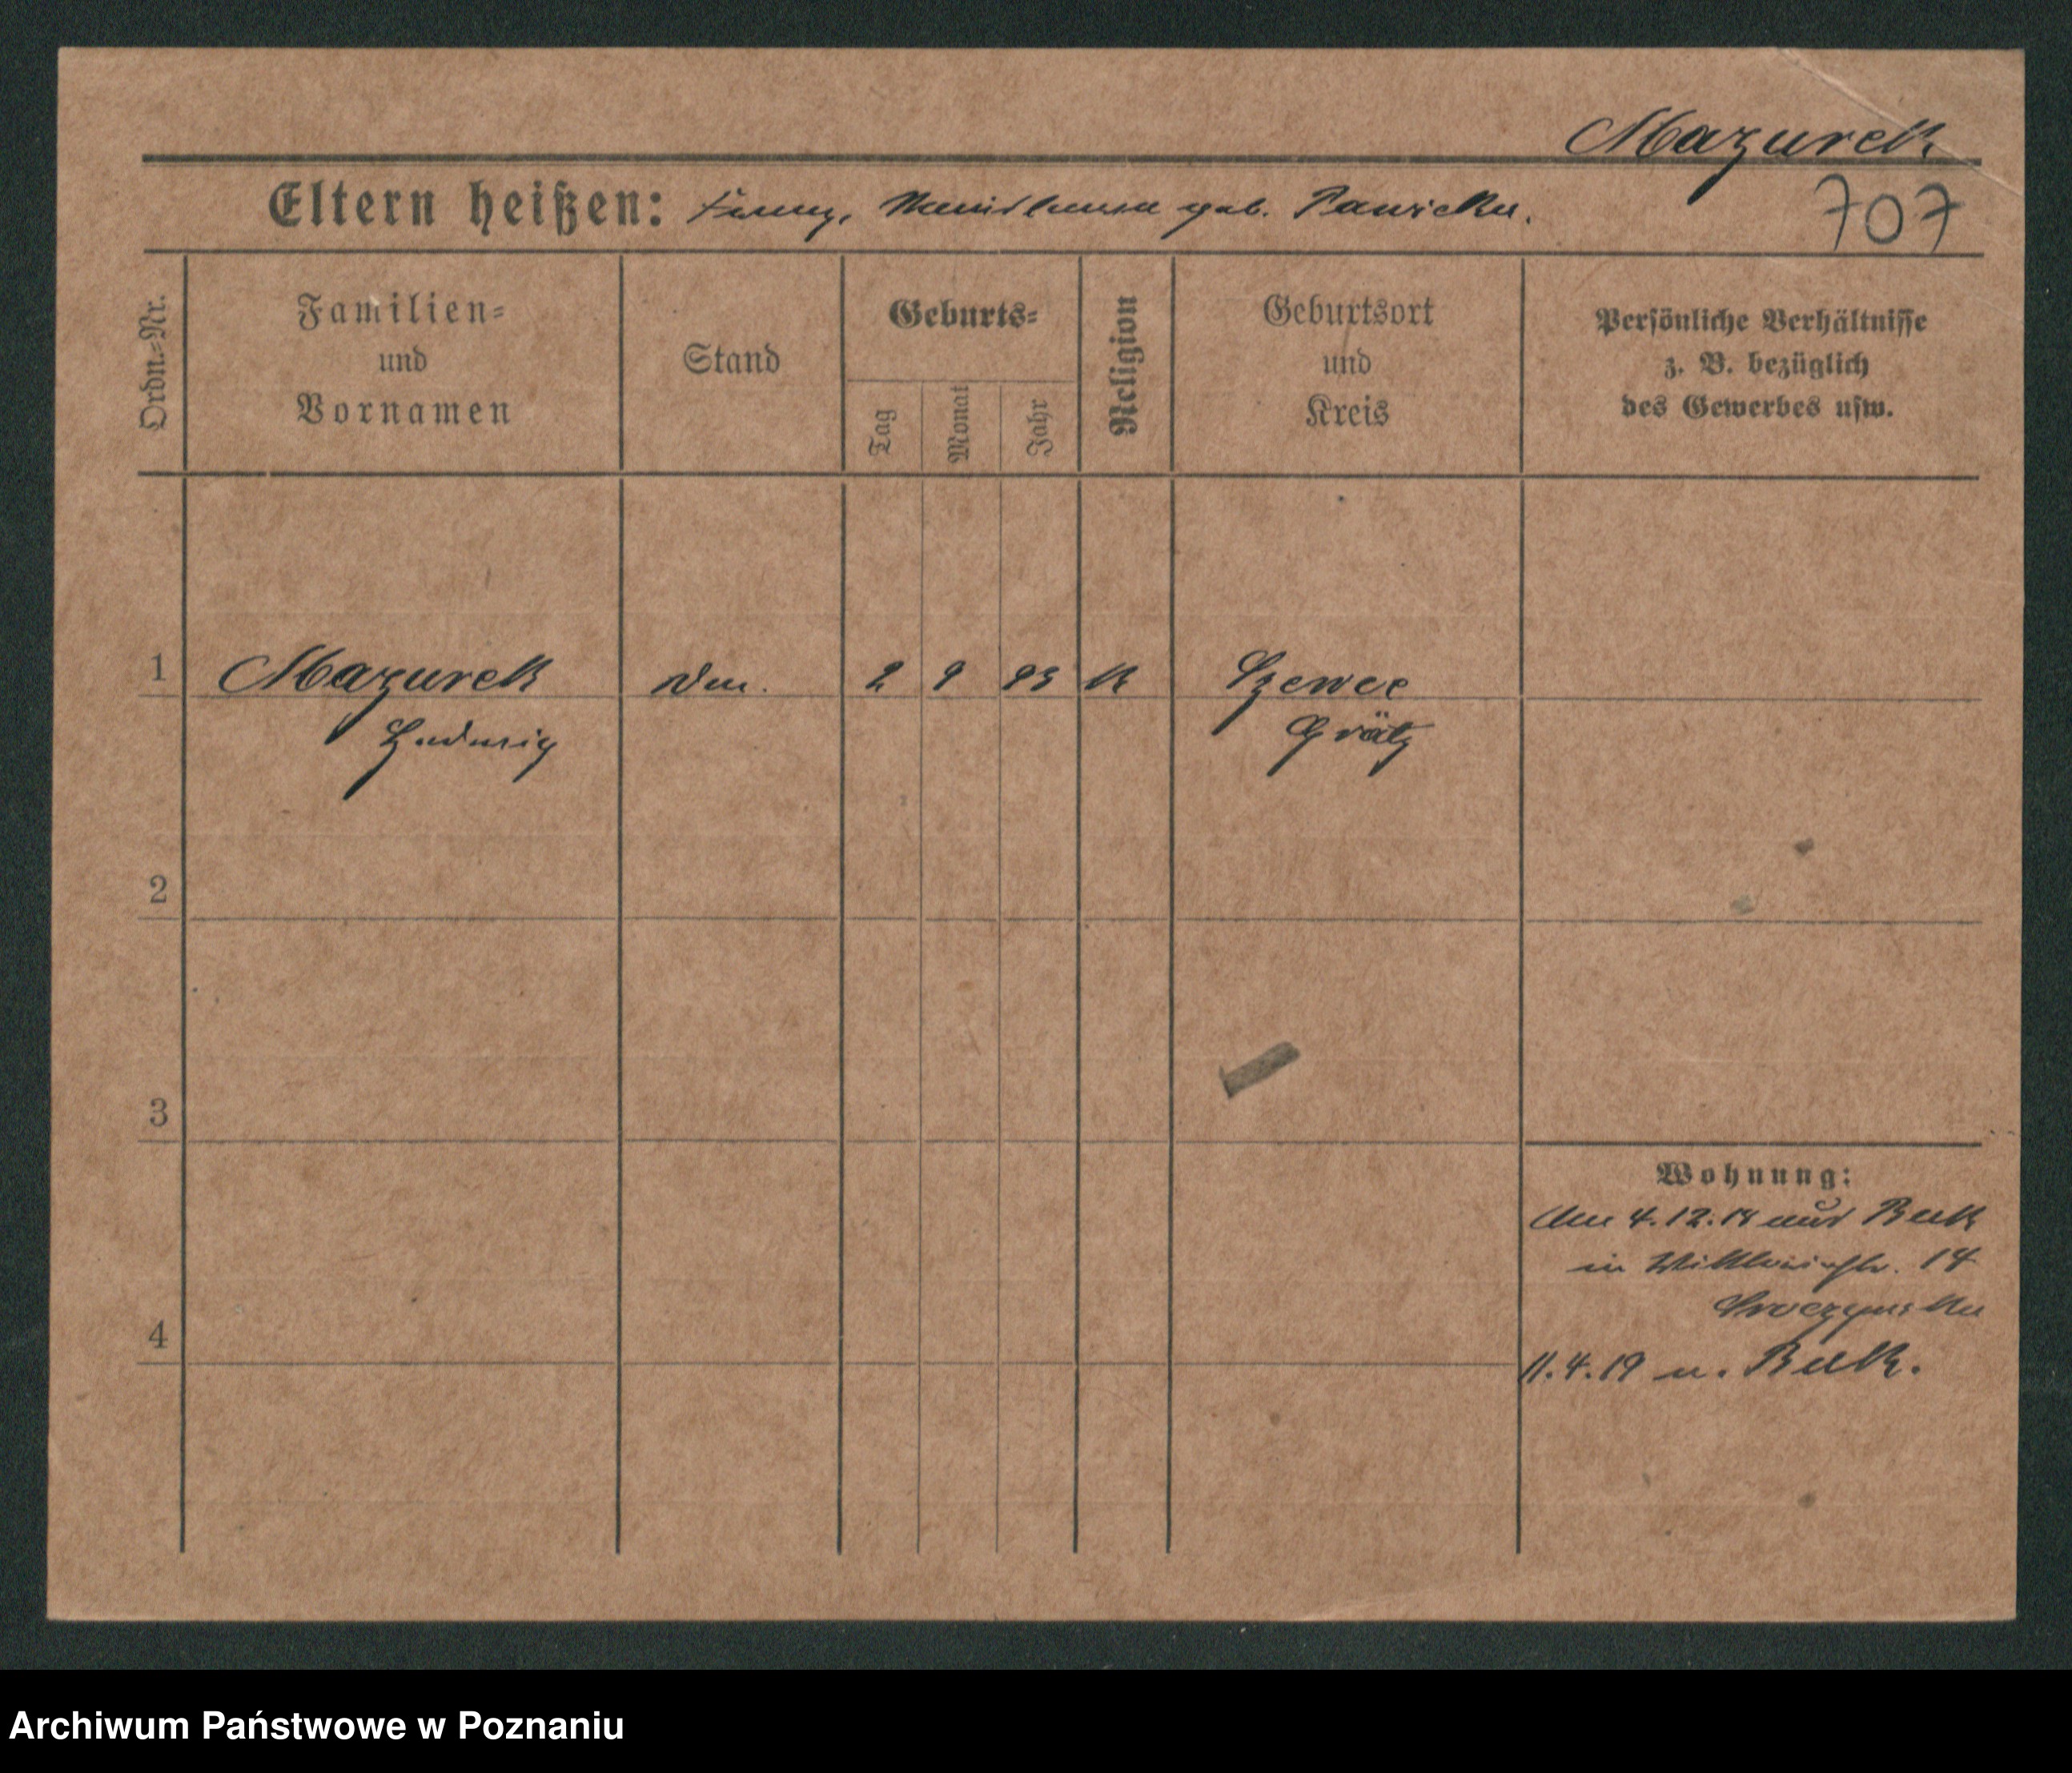 Mazurek
Eltern heißen: Franz, geb.
707
Ordn.-Nr.
Familien-
und
Vornamen
Stand
Geburts-
Tag
Monat
Jahr
Religion
Geburtsort
und
Kreis
Persönliche Verhältnisse
z. B. bezüglich
des Gewerbes usw.
1 Mazurek 2 9 K Szewce
Ludwig Grätz
2
3
4
Wohnung:
Am 4.12.18 aus Buk
in 14
11.4.19 n. Buk.
Archiwum Państwowe w Poznaniu